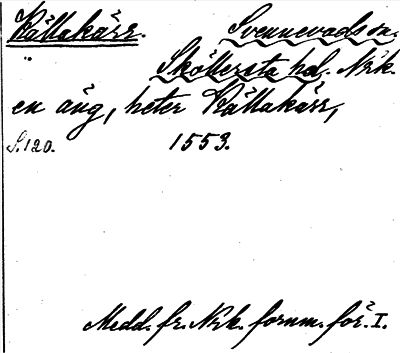 Källakärr. Svennevads sn.
" Sköllersta hd. Nrk.
en äng, heter Källakärr,
S. 120. 1553.
Medd. fr. Nrk. fornm. för. I.